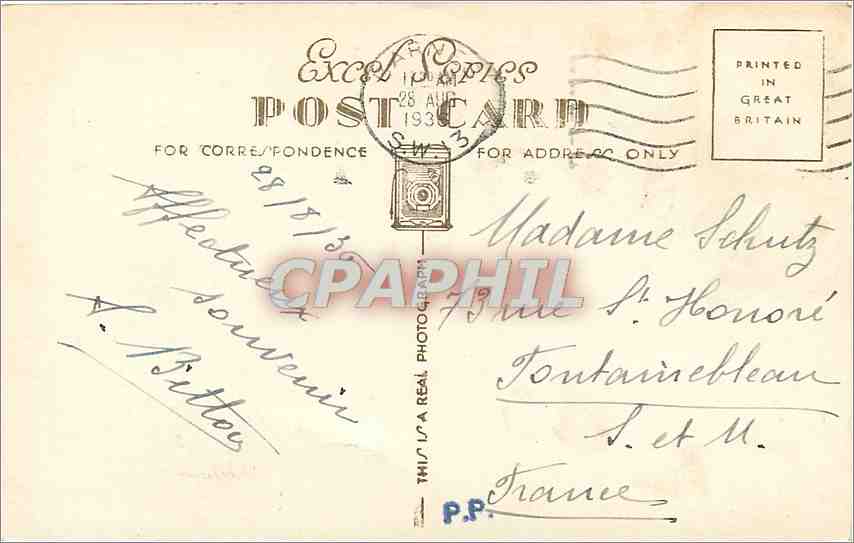 Excel Series
POST CARD
FOR CORRESPONDENCE
FOR ADDRESS ONLY
PRINTED
IN
GREAT
BRITAIN
11 AM
28 AUG
193
S.W.13
28/8/36
Affectueux
souvenir
Madame Schutz
73 rue St. Honoré
Fontainebleau
S. et M.
France
THIS IS A REAL PHOTOGRAPH
P.P.
CPAPHIL